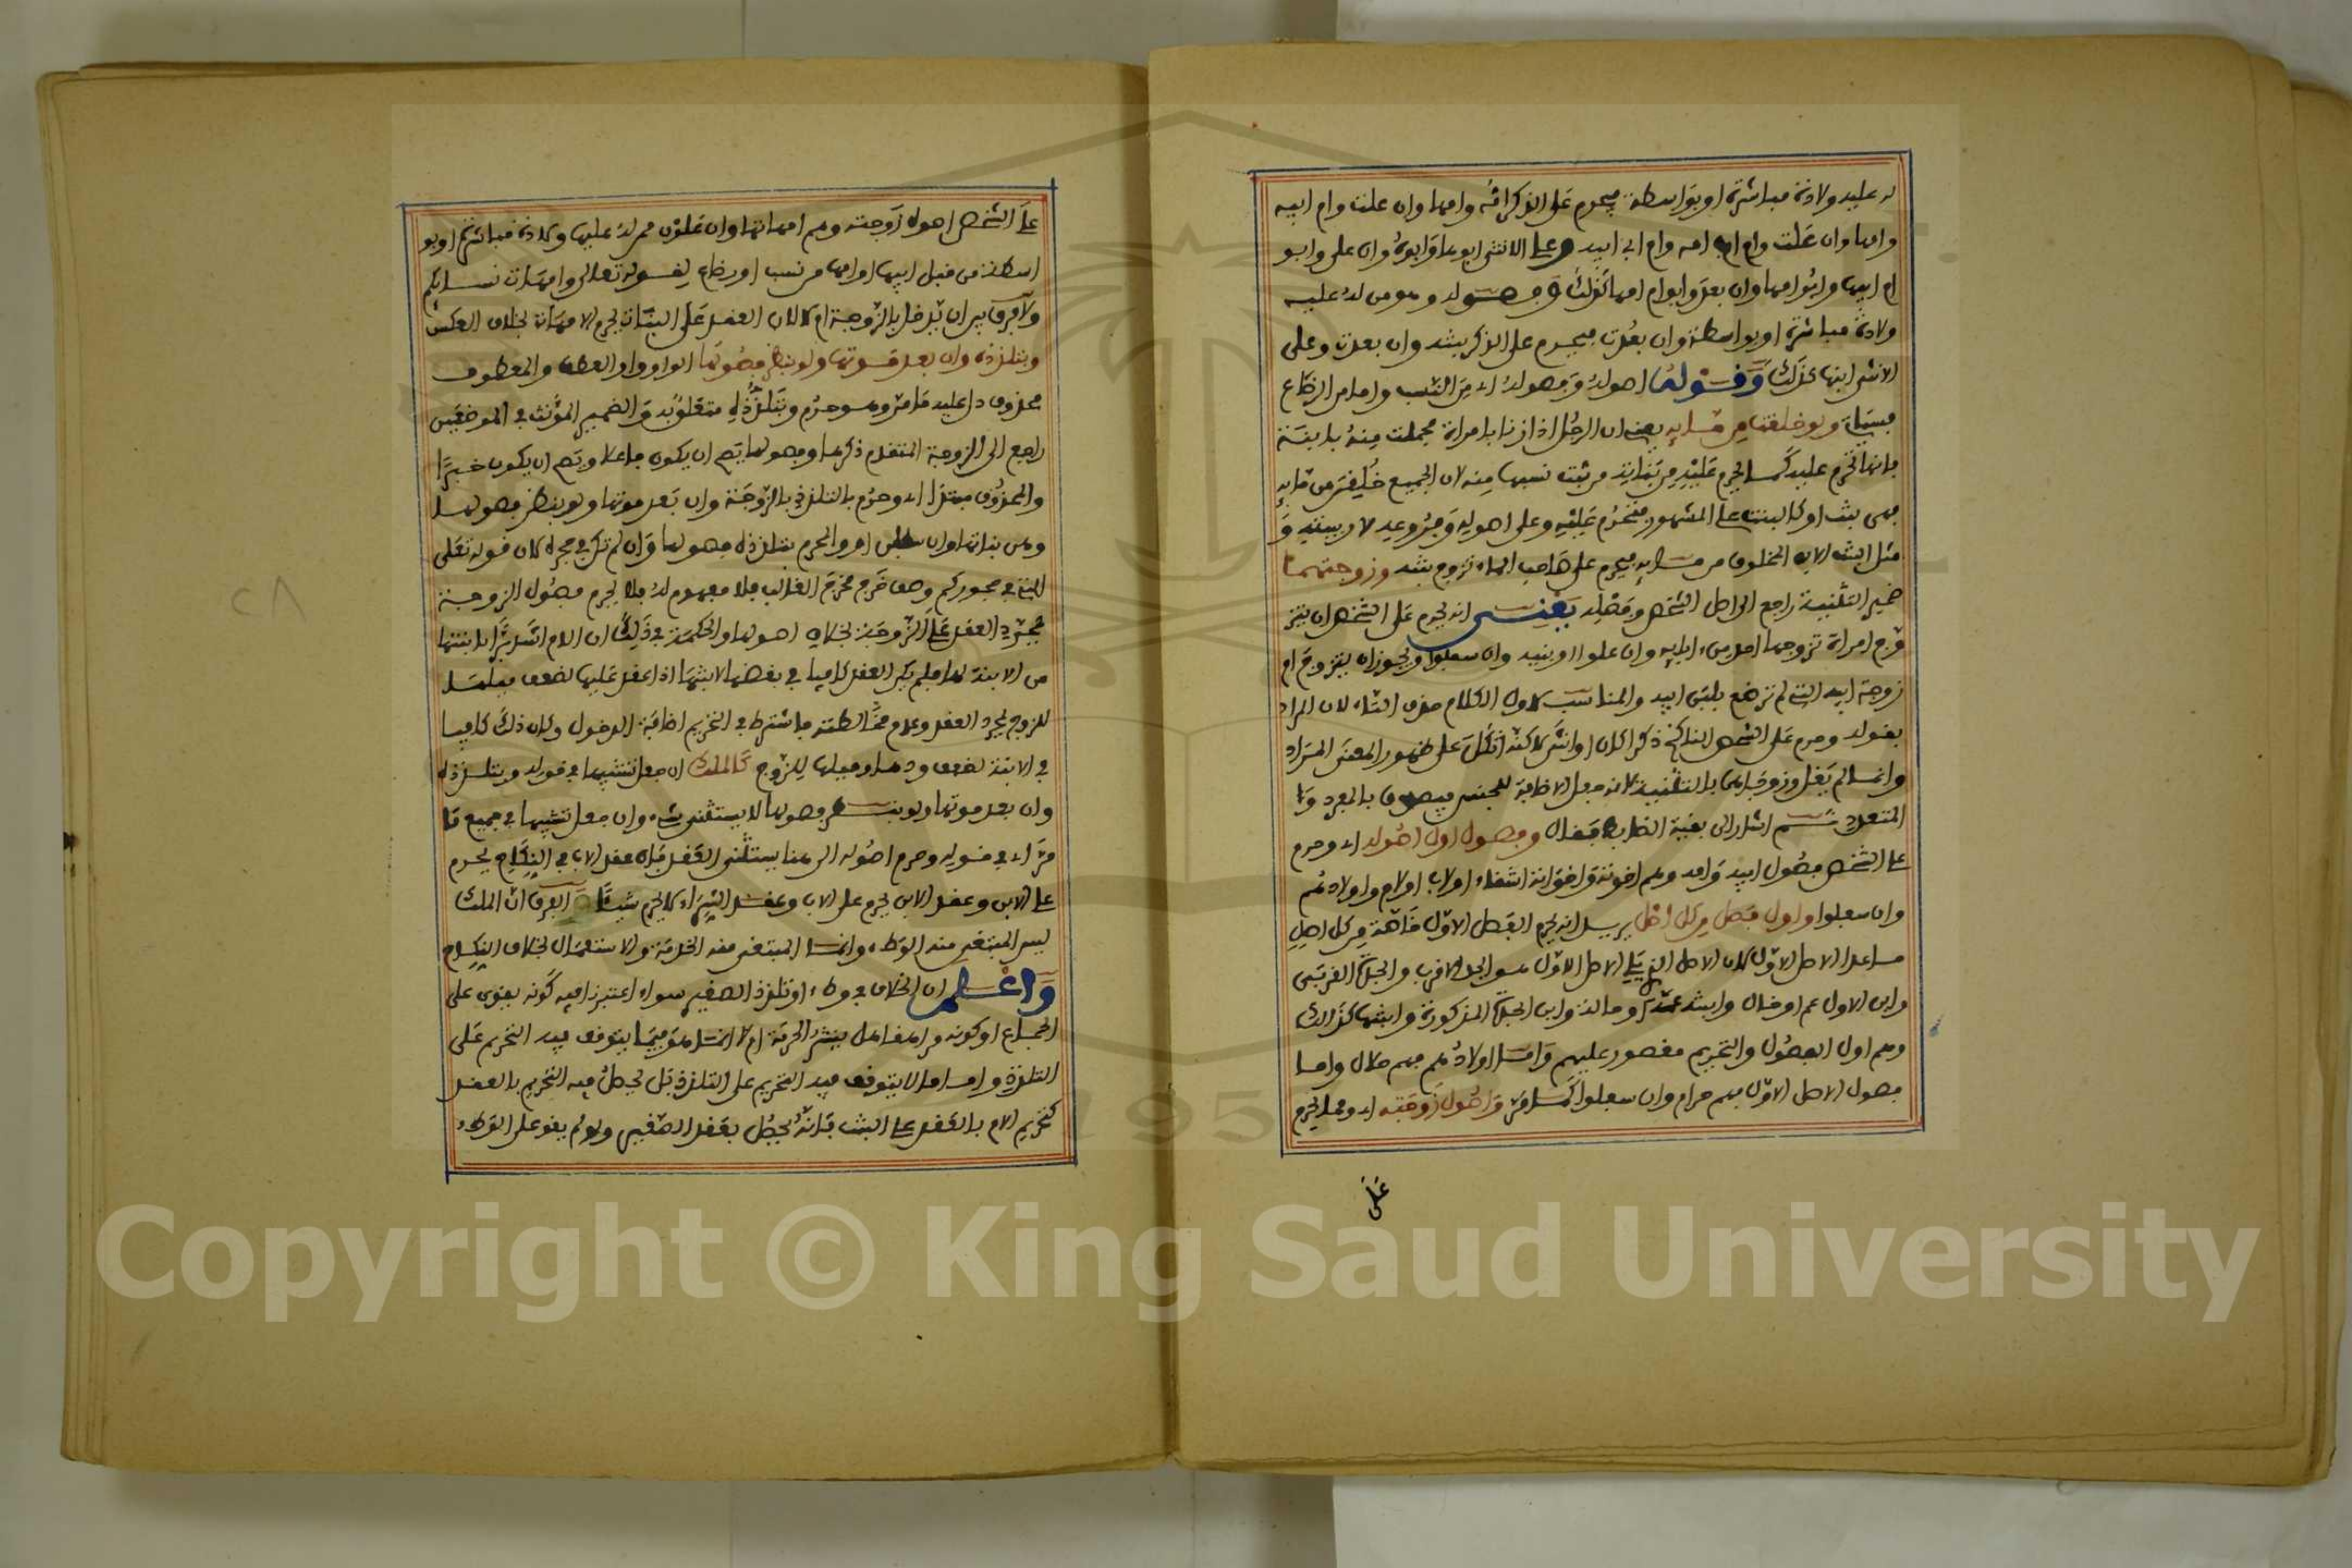 له عليه ولادة مباشرة او بواسطة فيحرم على الذكر امه وامها وان علت وام ابيه
وامها وان علت وام اب امه وام ابي ابيه وعلى الانثى ابوها وابوه وان علا وابو
ام ابيها وابو امها وان بعد وابو ام امها كذلك وفصوله وهو من له عليه
ولادة مباشرة او بواسطة وان بعدت فيحرم على الذكر بنته وان بعدت وعلى
الانثى ابنها كذلك وقوله اصوله وفصوله اي من النسب واما من الرضاع
فسياتي ولو خلقت من مائه يعني ان الرجل اذا زنا بامراة فحملت منه بابنة
فانها تحرم عليه كما يحرم عليه من بناته من ثبت نسبها منه لان الجميع خلقن من مائه
فهي بنت او كالبنت على المشهور فتحرم عليه وعلى اصوله وفروعه لا ربيبته و
مثل البنت الابن المخلوق من مائه فيحرم على صاحب الماء تزوج بنته وزوجتهما
ضمير التثنية راجع الى اصل الشخص وفصله يعني انه يحرم على الشخص ان يتز
وج امراة تزوجها احد من ابائه وان علوا او بنيه وان سفلوا ويجوز ان يتزوج ام
زوجة ابيه التي لم ترضع بلبن ابيه والمناسب لاول الكلام حذف التاء لان المراد
بقوله وحرم على الشخص الناكح ذكرا كان او انثى لاكنه اتكل على ظهور المعنى المراد
وانما لم يقل وزوجاهما بالتثنية لانه جعل الاضافة للجنس فيصدق بالمفرد و
المتعدد ثم اشار الى بقية الضابط فقال وفصول اول اصوله اي وحرم
على الشخص فصول ابيه وامه وهم اخوته واخواته اشقاء او لاب او لام واولادهم
وان سفلوا واول فصل من كل اصل يريد انه يحرم الفصل الاول خاصة من كل اصل
ما عدا الاصل الاول لان الاصل الذي يلي الاصل الاول هو الجد الاقرب والجدة القربى
وابن الاول عم او خال وابنته عمة او خالة وابن الجدة المذكورة وابنتها كذالك
وهم اول الفصول والتحريم مقصور عليهم واما اولادهم فهم حلال واما
فصول الاصل الاول فهم حرام وان سفلوا كما مر واصول زوجته اي ومما يحرم
على
على الشخص اصول زوجته وهم امهاتها وان علون ممن له عليها ولادة مباشرة او بو
اسطة من قبل ابيها او امها من نسب او رضاع لقوله تعالى وامهات نسائكم
ولا فرق بين ان يدخل بالزوجة ام لا لان العقد على البنات يحرم الامهات بخلاف العكس
وبتلذذه وان بعد موتها ولو بنظر فصولها الواو واو العطف والمعطوف
محذوف دل عليه ما مر وهو حرم وبتلذذه متعلق به والضمير المؤنث في الموضعين
راجع الى الزوجة المتقدم ذكرها وفصولها يصح ان يكون فاعلا ويصح ان يكون خبرا
والمحذوف مبتدا اي وحرم بالتلذذ بالزوجة وان بعد موتها ولو بنظر فصولها
وهن بناتها وان سفلن او والمحرم بتلذذه فصولها وان لم تكن في حجره لان قوله تعلى
اللتي في حجوركم وصف خرج مخرج الغالب فلا مفهوم له فلا يحرم فصول الزوجة
بمجرد العقد على الزوجة بخلاف اصولها والحكمة في ذلك ان الام اشد برا لابنتها
من الابنة لها فلم يكن العقد كافيا في بغضها لابنتها اذا عقد عليها لضعف ميلها
للزوج بمجرد العقد وعدم مخالطته فاشترط في التحريم اضافة الدخول وكان ذلك كافيا
في الابنة لضعف ودها وميلها للزوج كالملك ان جعل تشبيها في قوله وبتلذذه
وان بعد موتها ولو بنظر فصولها لا يستثنى شيء وان جعل تشبيها في جميع ما
مر اي في قوله وحرم اصوله الى هنا يستثنى العقد فان عقد الاب في النكاح يحرم
على الابن وعقد الابن يحرم على الاب وعقد الشراء لا يحرم شيئا والفرق ان الملك
ليس المبتغى منه الوطء وانما المبتغى منه الخدمة والاستعمال بخلاف النكاح
واعلم ان الخلاف في وطء او تلذذ الصغير سواء اعتبرنا فيه كونه يقوى على
الجماع او كونه مراهقا هل ينشر الحرمة ام لا انما هو فيما يتوقف فيه التحريم على
التلذذ واما ما لا يتوقف فيه التحريم على التلذذ بل يحصل فيه التحريم بالعقد
كتحريم الام بالعقد على البنت فانه يحصل بعقد الصغير ولو لم يقو على الوطء
٢٨
Copyright © King Saud University
1957